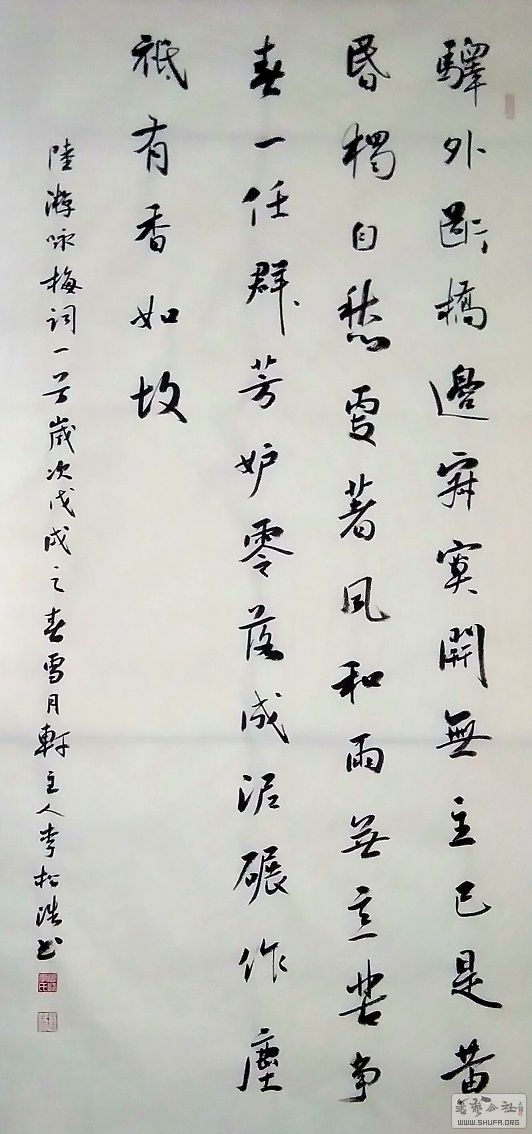 驛外斷橋邊寂寞開無主已是黄
昏獨自愁更著風和雨無意苦争
春一任群芳妒零落成泥碾作塵
祇有香如故
陸游咏梅詞一首歲次戊戌之春雪月軒主人李松书
書藝公社
WWW.SHUFA.ORG